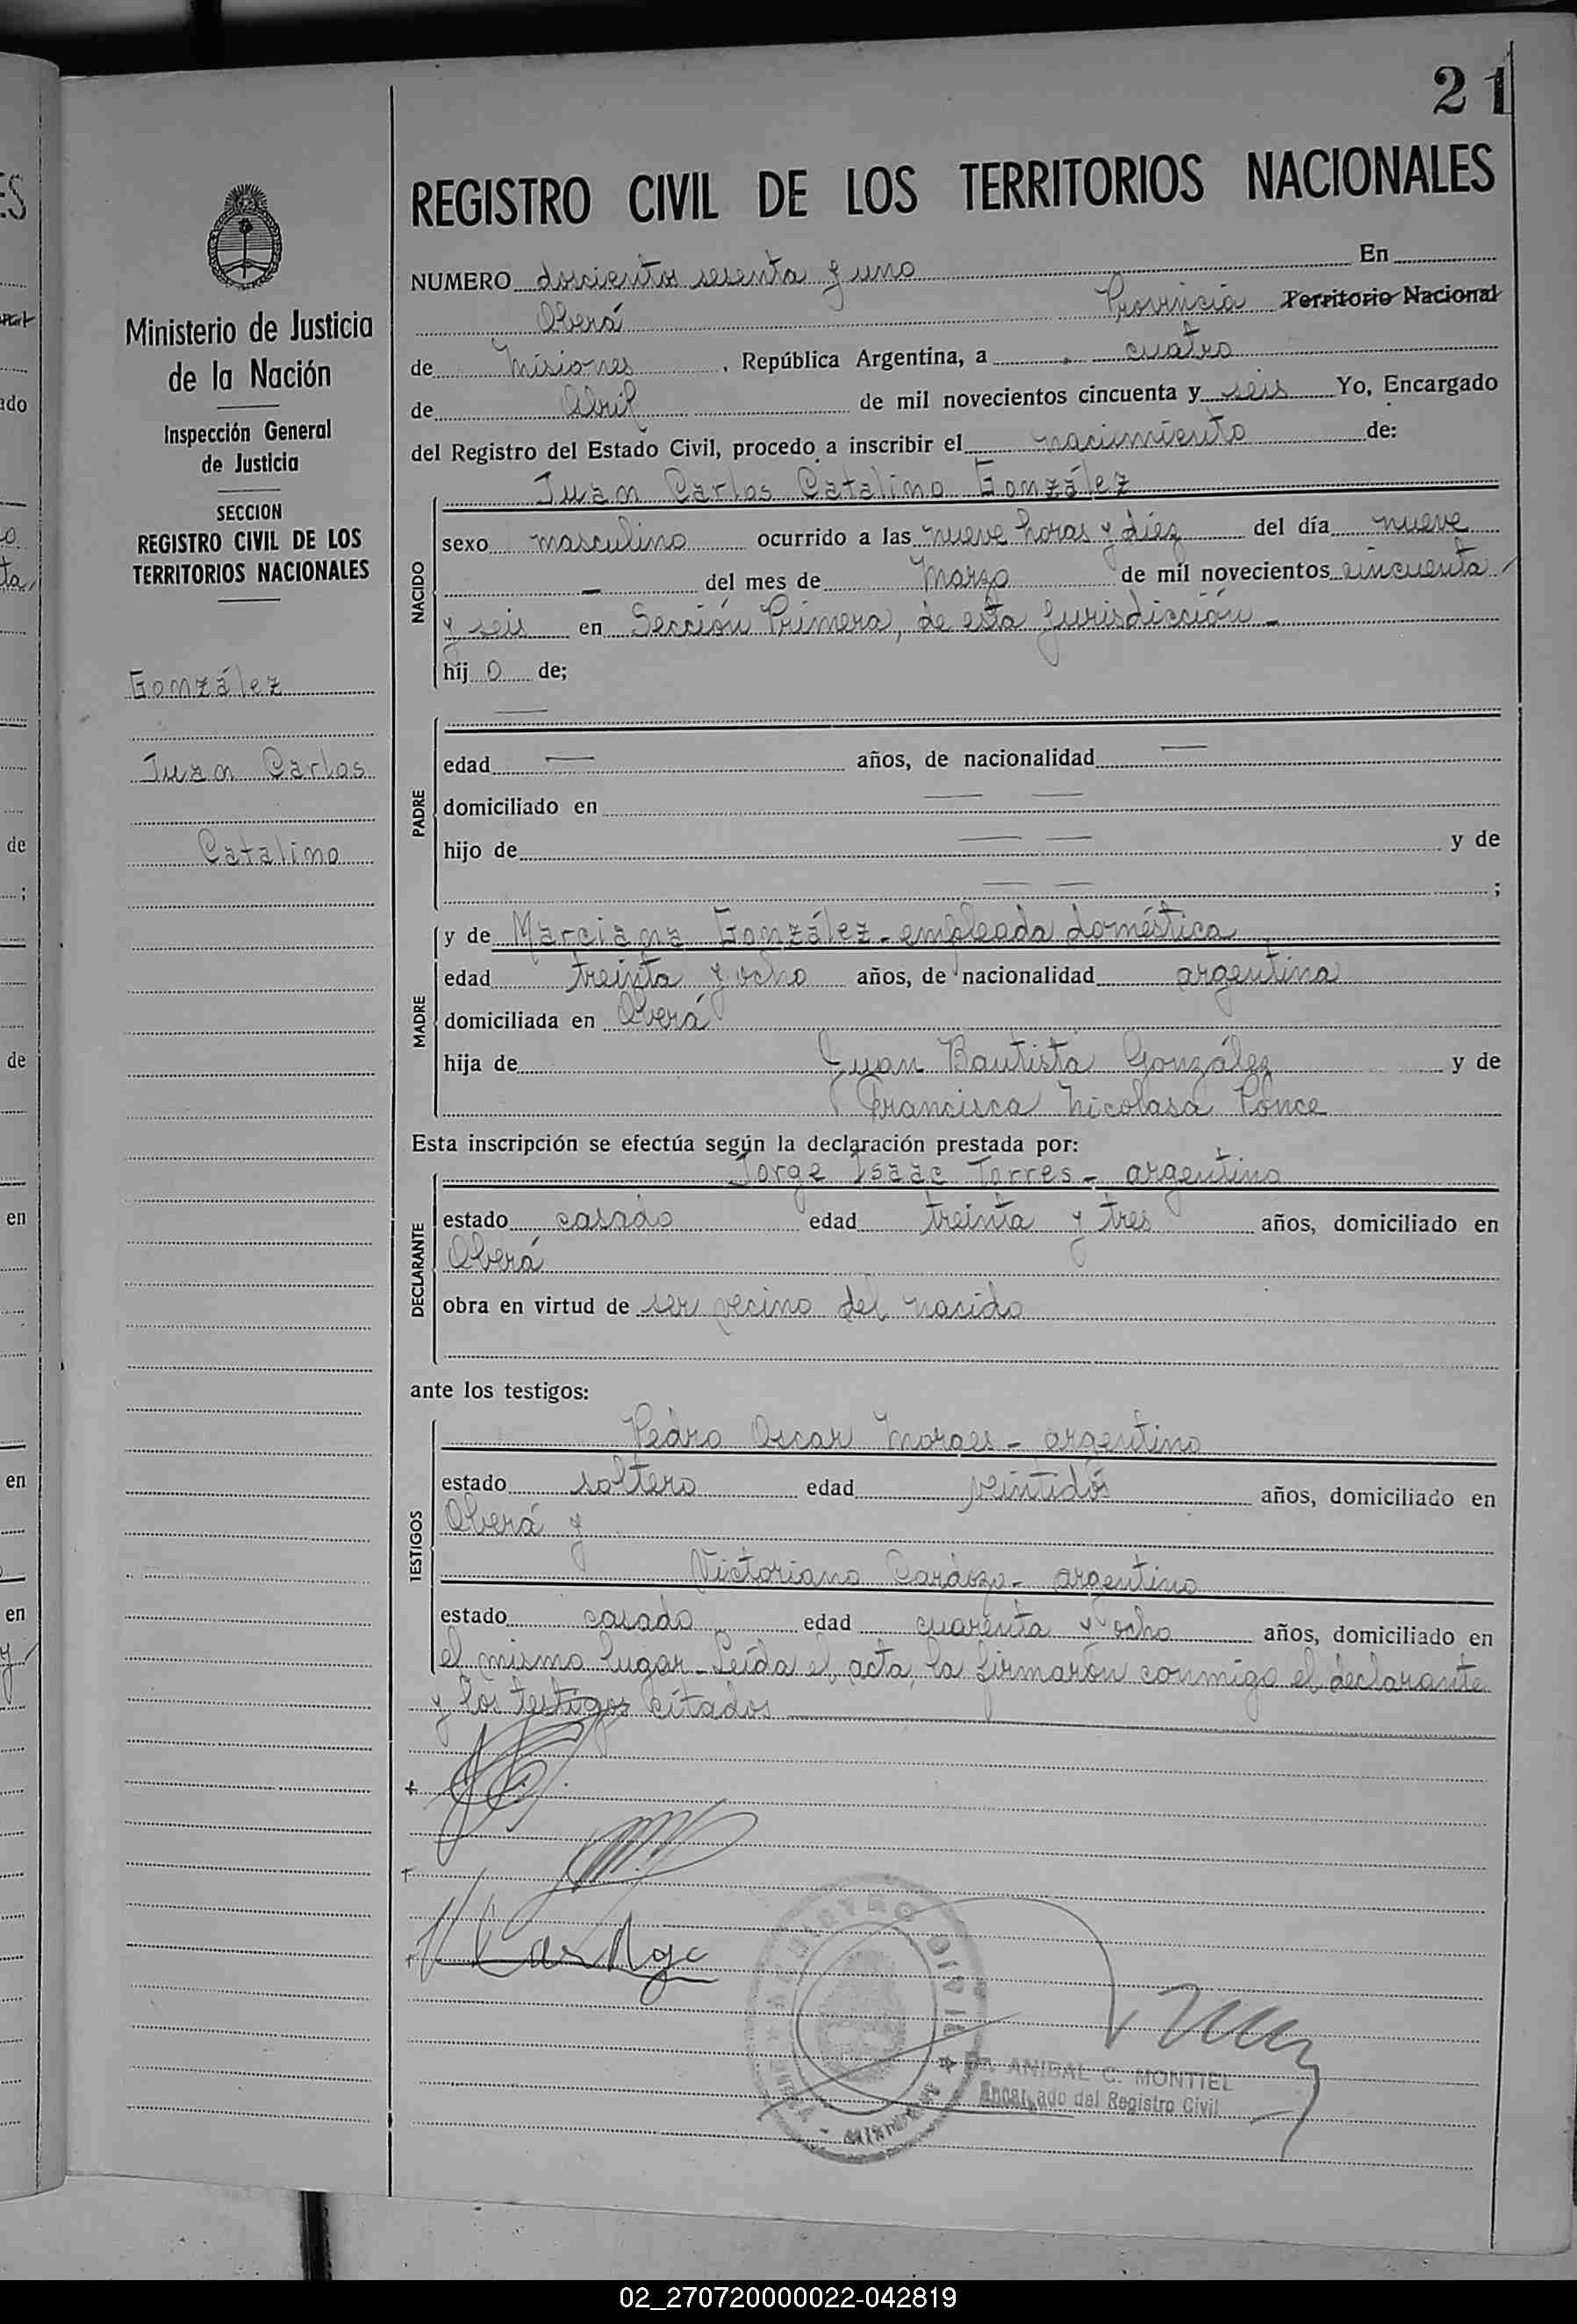 21
REGISTRO CIVIL DE LOS TERRITORIOS NACIONALES
Ministerio de Justicia
de la Nación
Inspección General
de Justicia
SECCION
REGISTRO CIVIL DE LOS
TERRITORIOS NACIONALES
González
Juan Carlos
Catalino
NUMERO doscientos sesenta y uno En
Oberá Provincia Territorio Nacional
de Misiones, República Argentina, a cuatro
de Abril de mil novecientos cincuenta y seis Yo, Encargado
del Registro del Estado Civil, procedo a inscribir el nacimiento de:
NACIDO
Juan Carlos Catalino González
sexo masculino ocurrido a las nueve horas y diez del día nueve
— del mes de Marzo de mil novecientos cincuenta
y seis en Sección Primera, de esta Jurisdicción -
hij o de;
PADRE
—
edad — años, de nacionalidad —
domiciliado en — —
hijo de — — y de
— — ;
y de Marciana González - empleada doméstica
MADRE
edad treinta y ocho años, de nacionalidad argentina
domiciliada en Oberá
hija de Juan Bautista González y de
Francisca Nicolasa Ponce
Esta inscripción se efectúa según la declaración prestada por:
DECLARANTE
Jorge Isaac Torres - argentino
estado casado edad treinta y tres años, domiciliado en
Oberá
obra en virtud de ser vecino del nacido
ante los testigos:
TESTIGOS
Pedro Oscar Moraes - argentino
estado soltero edad veintidós años, domiciliado en
Oberá y
Victoriano Cardozo - argentino
estado casado edad cuarenta y ocho años, domiciliado en
el mismo lugar - Leída el acta, la firmaron conmigo el declarante
y los testigos citados
REGISTRO CIVIL
MISIONES
Dr. ANIBAL C. MONTIEL
Encargado del Registro Civil
02_270720000022-042819